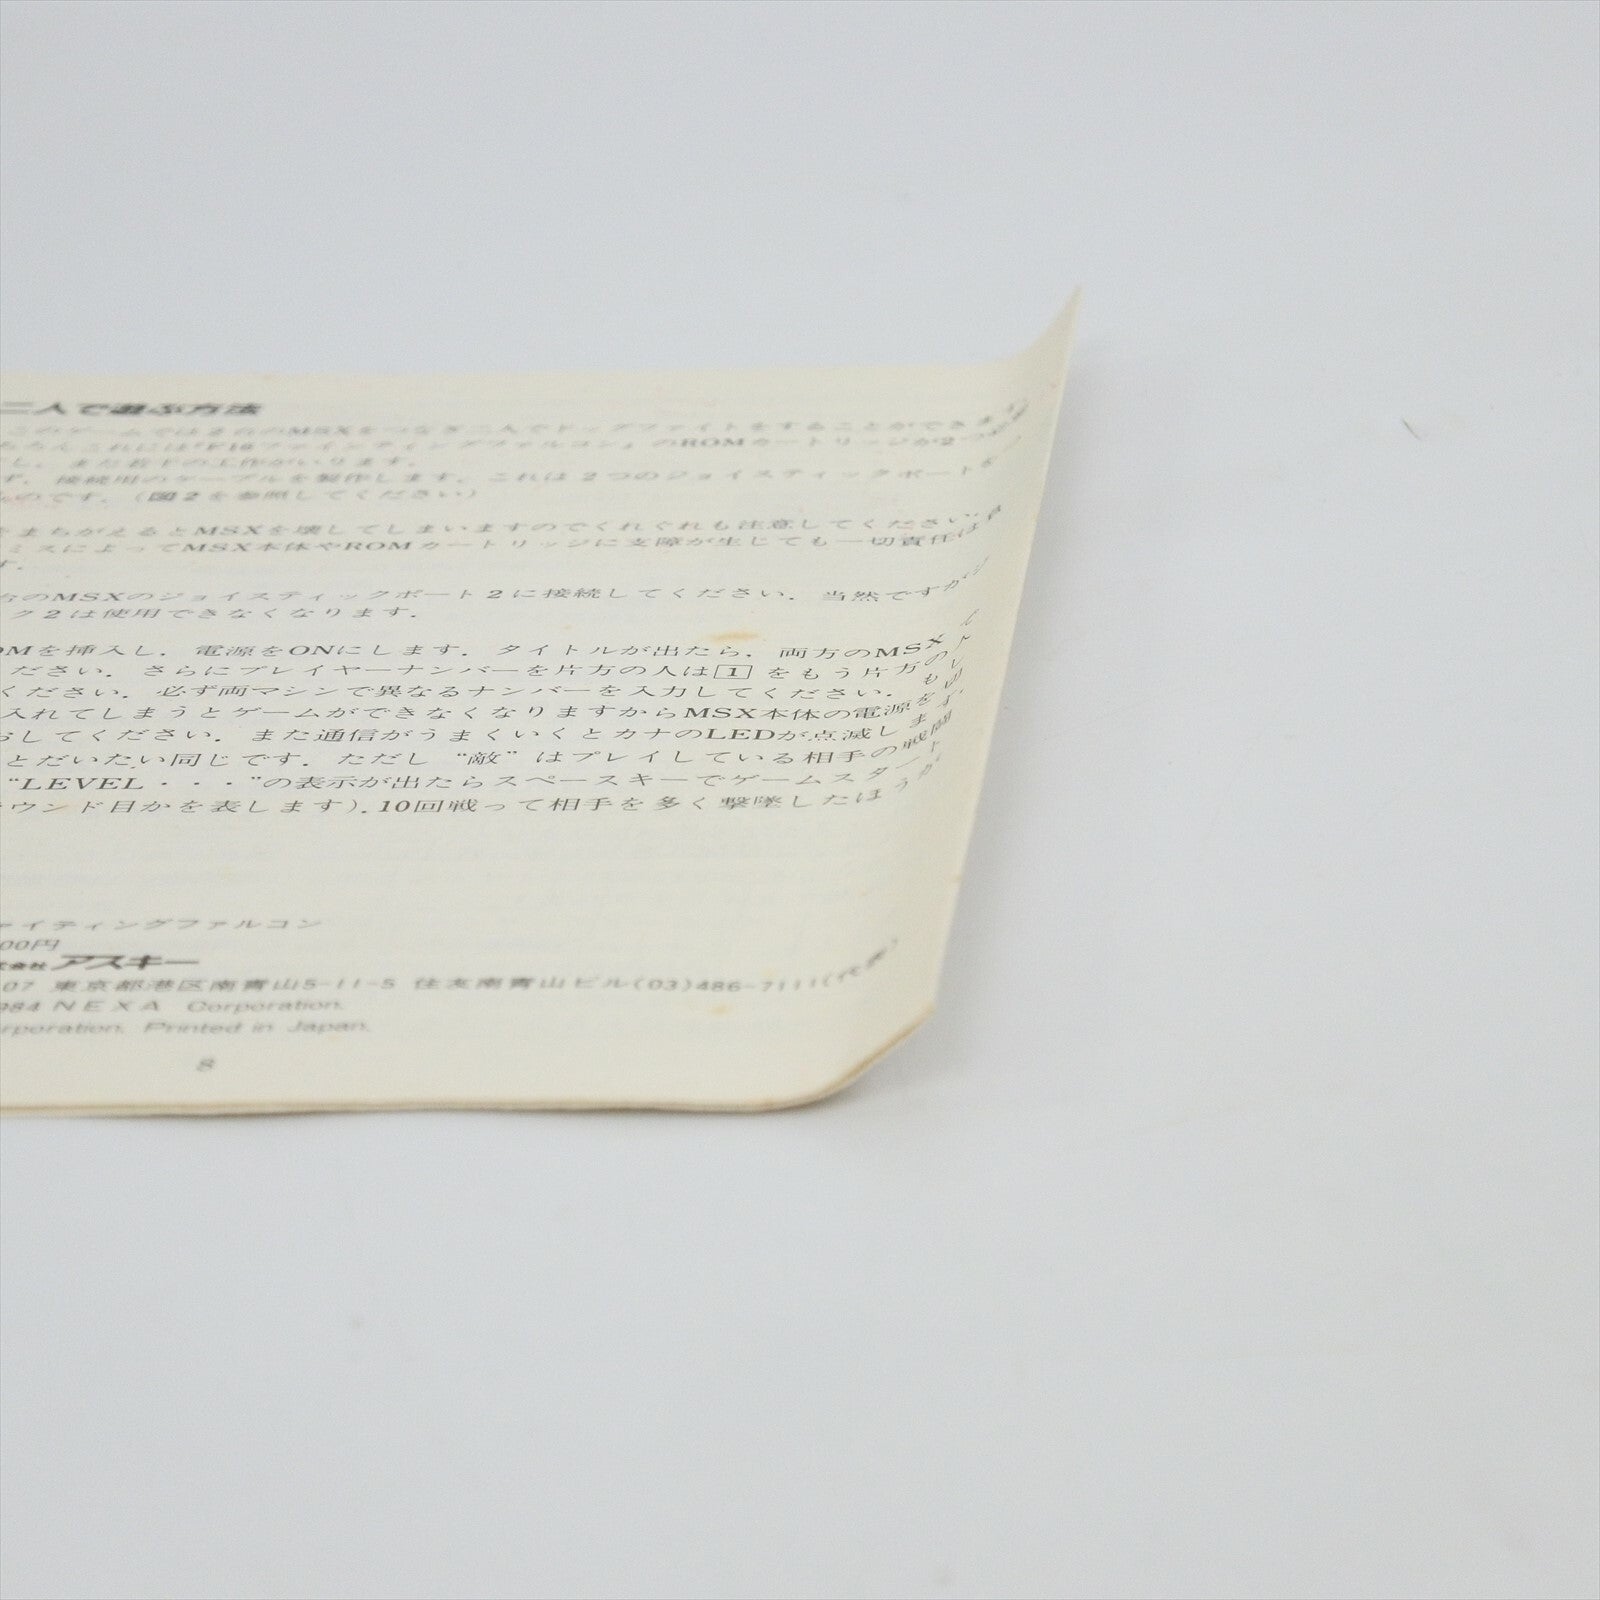 二人で遊ぶ方法
このゲームでは2台のMSXをつなぎ二人でドッグファイトをすることができま
ちろんこれには『F16ファイティングファルコン』のROMカートリッジが2つ必要
し、また若干の工作がいります.
ず、接続用のケーブルを製作します. これは2つのジョイスティックポートを
ものです. (図2を参照してください)
をまちがえるとMSXを壊してしまいますのでくれぐれも注意してください.
ミスによってMSX本体やROMカートリッジに支障が生じても一切責任は
す.
台のMSXのジョイスティックポート2に接続してください. 当然ですが
ク2は使用できなくなります.
OMを挿入し, 電源をONにします. タイトルが出たら, 両方のMSX
ださい. さらにプレイヤーナンバーを片方の人は1をもう片方の
ください. 必ず両マシンで異なるナンバーを入力してください. も
入れてしまうとゲームができなくなりますからMSX本体の電源を
おしてください. また通信がうまくいくとカナのLEDが点滅しま
とだいたい同じです. ただし“敵”はプレイしている相手の戦闘
“LEVEL・・・”の表示が出たらスペースキーでゲームスタート
ラウンド目かを表します). 10回戦って相手を多く撃墜したほうが
ァイティングファルコン
00円
式会社アスキー
107 東京都港区南青山5-11-5 住友南青山ビル(03)486-7111(代表)
984 NEXA Corporation.
rporation. Printed in Japan.
8